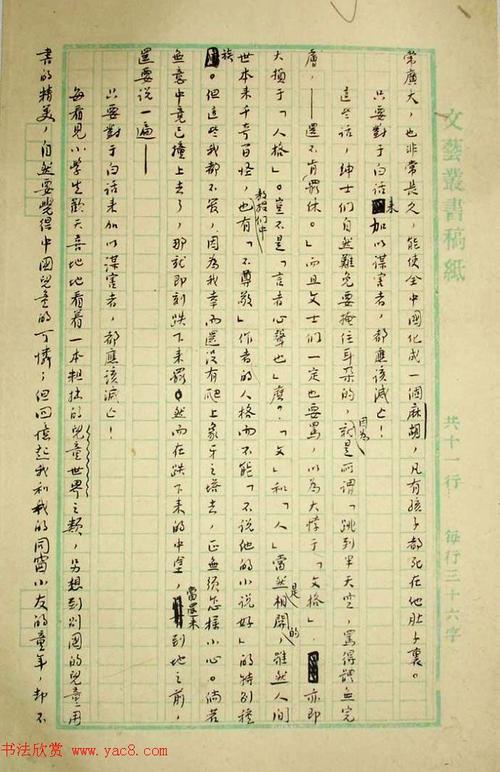 文藝叢書稿紙 共十一行 每行三十六字
榮廣大，也非常長久，能使全中國化成一個麻胡，凡有孩子都死在他肚子裏。
只要對于白話來加以謀害者，都應該滅亡！
這些話，紳士們自然難免要掩住耳朵的，因為就是所謂「跳到半天空，罵得體無完
膚，——還不肯罷休。」而且文士們一定也要罵，以為大悖于「文格」，亦即
大損于「人格」。豈不是「言者心聲也」麼？「文」和「人」當然是相關的，雖然人間
世本來千奇百怪，教授們中也有「不尊敬」作者的人格而不能「不說他的小說好」的特別種
族。但這些我都不管，因為我幸而還沒有爬上象牙之塔去，正無須怎樣小心。倘若
無意中竟已撞上去了，那就即刻跌下來罷。然而在跌下來的中途，當還未到地之前，
還要說一遍——
只要對于白話來加以謀害者，都應該滅亡！
每看見小學生歡天喜地地看着一本粗拙的兒童世界之類，另想到別國的兒童用
書的精美，自然要覺得中國兒童的可憐；但回憶起我和我的同窗小友的童年，却不
书法欣赏 www.yac8.com